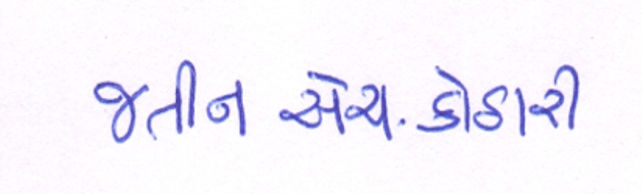 જતીન એચ. કોઠારી